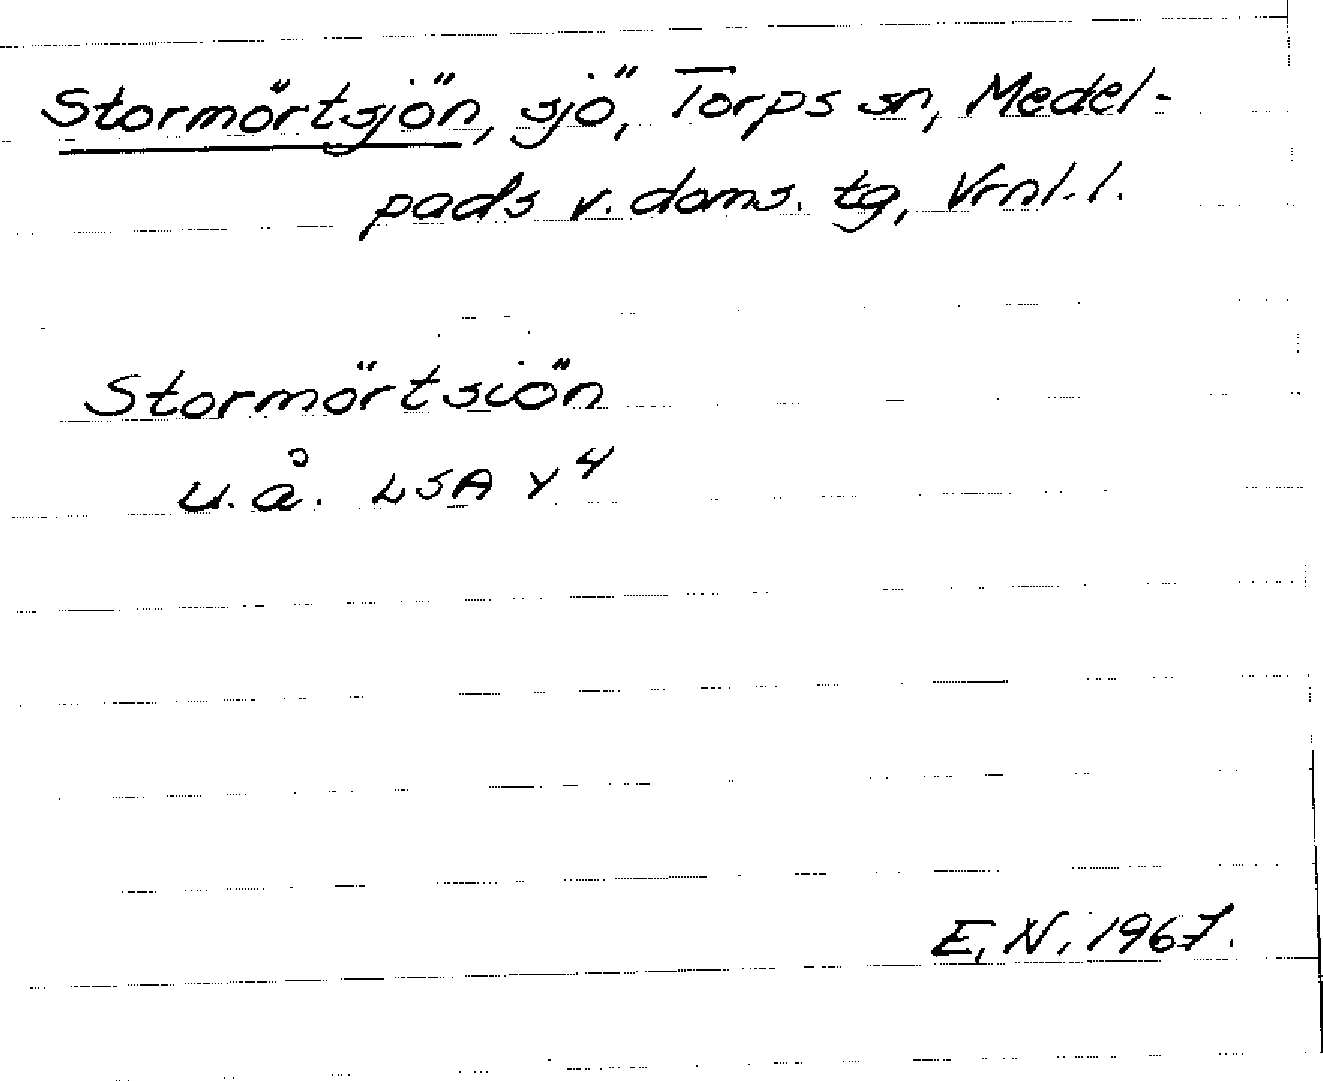 Stormörtsjön, sjö, Torps sn, Medel-
pads v. doms. tg, Vrnl. l.
Stormörtsiön
u.å. LSA Y 4
E. N. 1967.